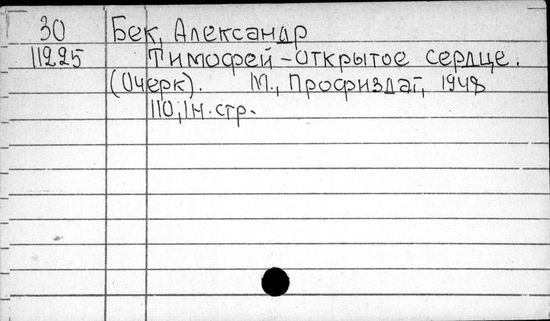 30 Бек, Александр
11225 Тимофей - Открытое сердце.
(Очерк). М., Профиздат, 1948
110, 1 н. стр.